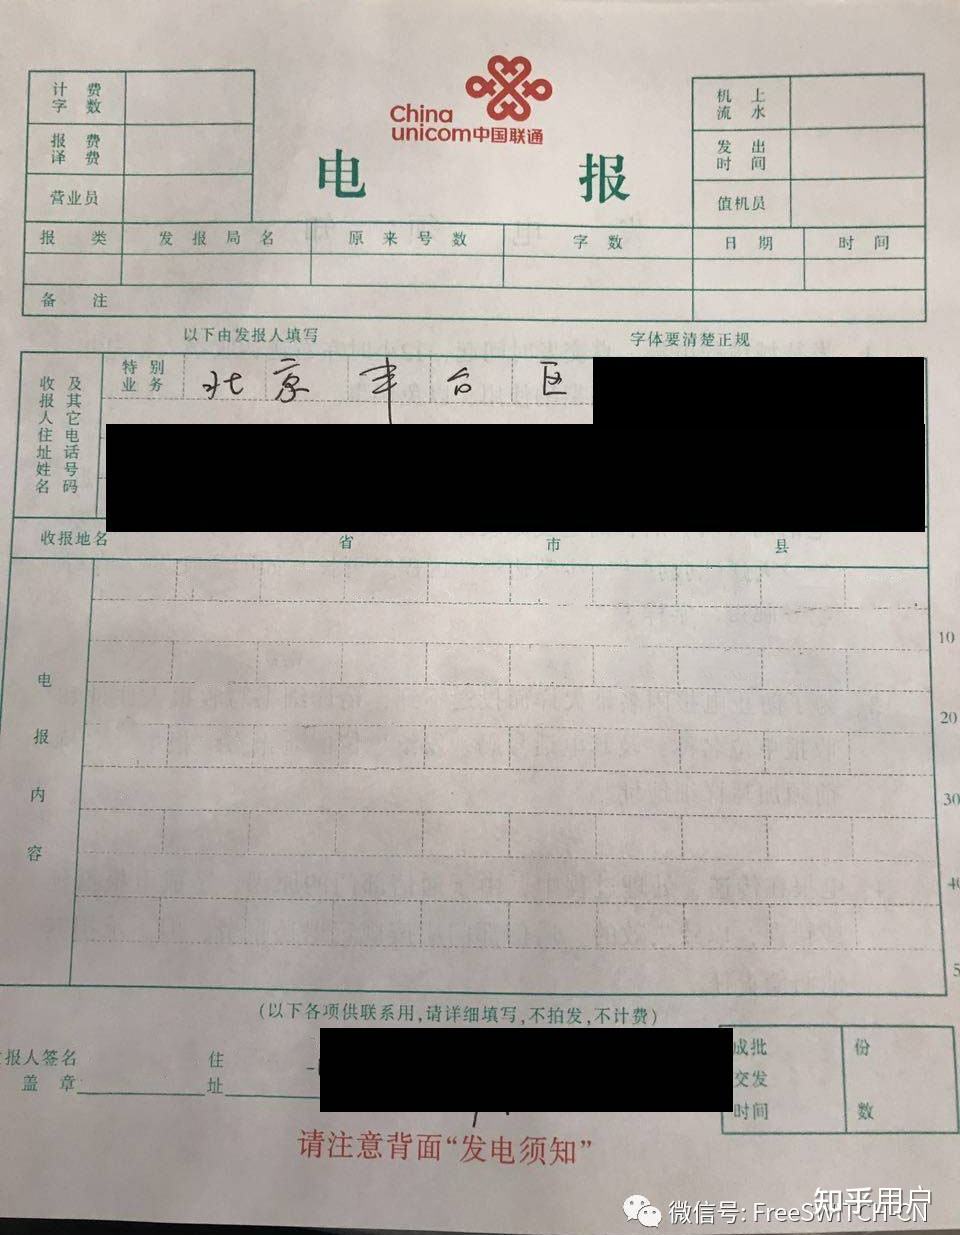 China
unicom中国联通
电 报
计 费
字 数
报 费
译 费
营业员
机 上
流 水
发 出
时 间
值机员
报 类 发 报 局 名 原 来 号 数 字 数 日 期 时 间
备 注
以下由发报人填写 字体要清楚正规
收报人住址姓名
及其它电话号码
特 别
业 务
北京丰台区
收报地名 省 市 县
电报内容
10
20
30
40
5
(以下各项供联系用,请详细填写,不拍发,不计费)
报人签名
盖 章
住
址
成批
交发
时间
份
数
请注意背面“发电须知”
知乎用户
微信号: FreeSWITCH-CN